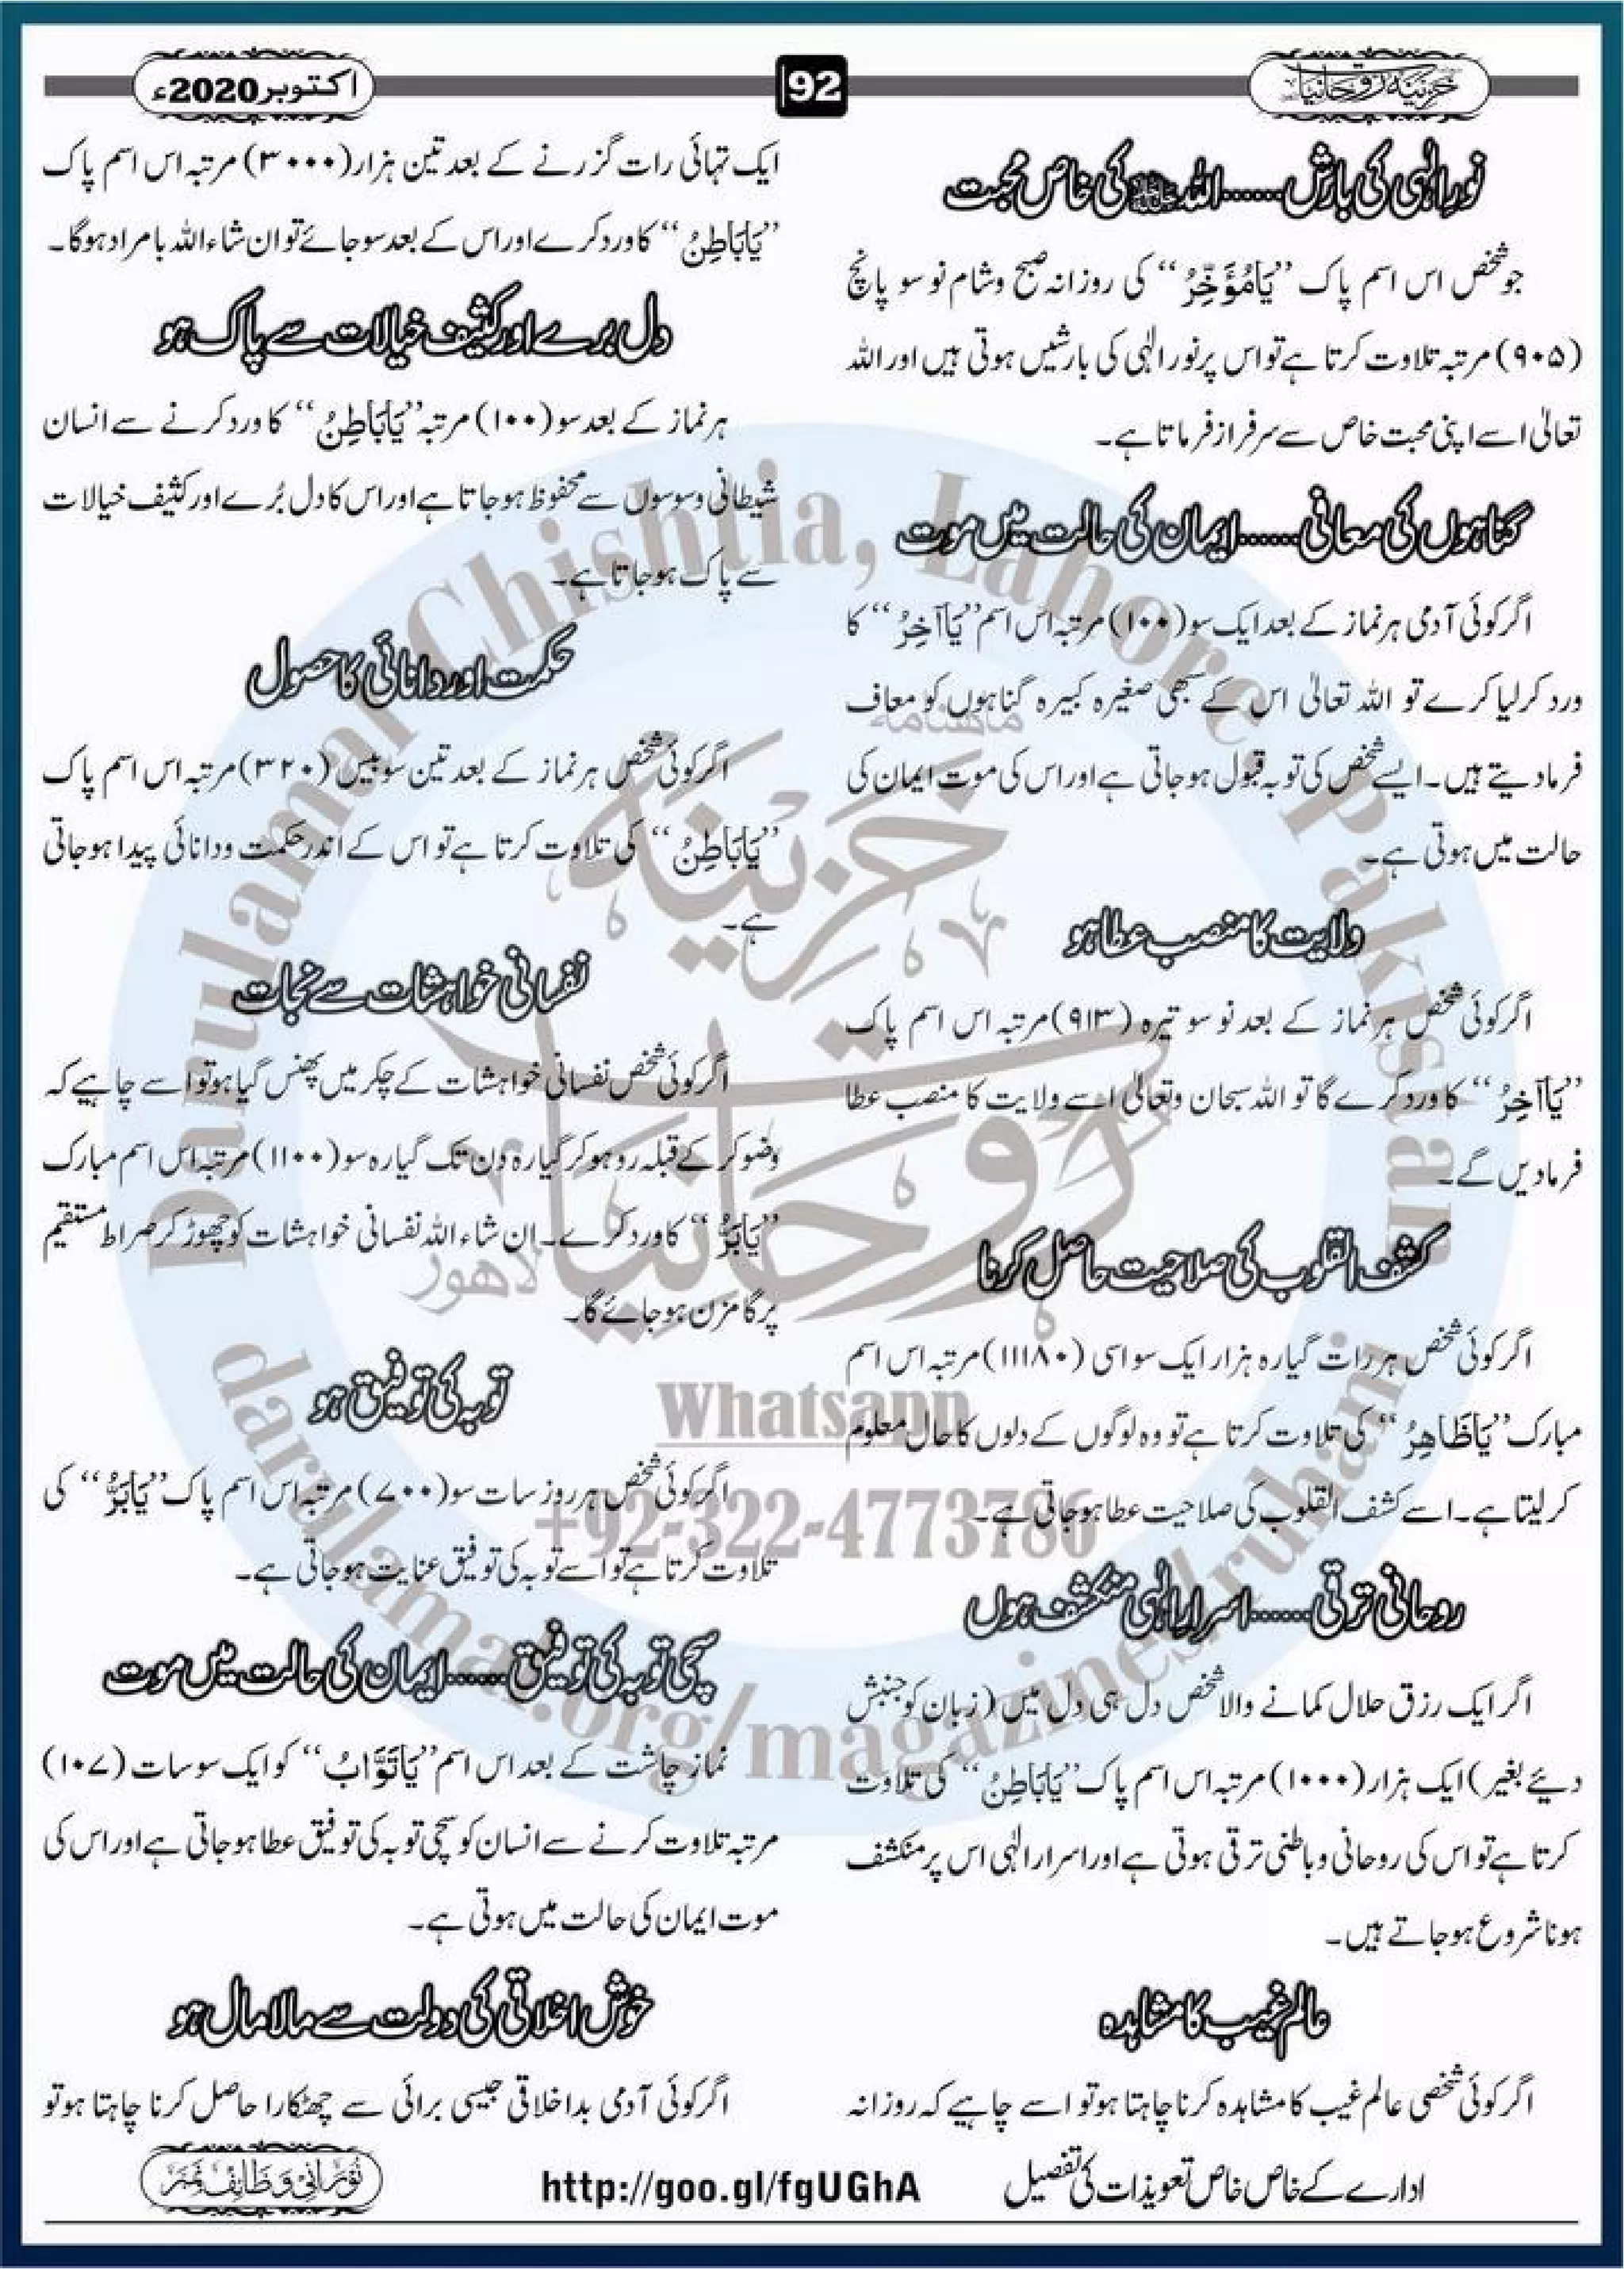 خزینۂ روحانیات
92
اکتوبر2020ء
نورِ الٰہی کی بارش......اللہ ﷻ کی خاص محبت
جو شخص اس اسم پاک ”یَامُؤَخِّرُ“ کی روزانہ صبح وشام نوسو پانچ
(۹۰۵) مرتبہ تلاوت کرتا ہے تو اس پر نور الٰہی کی بارشیں ہوتی ہیں اور اللہ
تعالیٰ اسے اپنی محبت خاص سے سرفراز فرماتا ہے۔
گناہوں کی معافی......ایمان کی حالت میں موت
اگر کوئی آدمی ہر نماز کے بعد ایک سو(۱۰۰) مرتبہ اس اسم ”یَاآخِرُ“ کا
ورد کرلیا کرے تو اللہ تعالیٰ اس کے سبھی صغیرہ کبیرہ گناہوں کو معاف
فرمادیتے ہیں۔ ایسے شخص کی توبہ قبول ہوجاتی ہے اور اس کی موت ایمان کی
حالت میں ہوتی ہے۔
ولایت کا منصب عطا ہو
اگر کوئی شخص ہر نماز کے بعد نوسو تیرہ (۹۱۳) مرتبہ اس اسم پاک
”یَاآخِرُ“ کا ورد کرے گا تو اللہ سبحان وتعالیٰ اسے ولایت کا منصب عطا
فرمادیں گے۔
کشف القلوب کی صلاحیت حاصل کرنا
اگر کوئی شخص ہر رات گیارہ ہزار ایک سو اسی (۱۱۱۸۰) مرتبہ اس اسم
مبارک ”یَاظَاہِرُ“ کی تلاوت کرتا ہے تو وہ لوگوں کے دلوں کا حال معلوم
کرلیتا ہے۔ اسے کشف القلوب کی صلاحیت عطا ہوجاتی ہے۔
روحانی ترقی......اسرارِ الٰہی منکشف ہوں
اگر ایک رزق حلال کمانے والا شخص دل ہی دل میں (زبان کو جنبش
دیئے بغیر) ایک ہزار (۱۰۰۰) مرتبہ اس اسم پاک ”یَابَاطِنُ“ کی تلاوت
کرتا ہے تو اس کی روحانی وباطنی ترقی ہوتی ہے اور اسرار الٰہی اس پر منکشف
ہونا شروع ہوجاتے ہیں۔
عالم غیب کا مشاہدہ
اگر کوئی شخصی عالم غیب کا مشاہدہ کرنا چاہتا ہو تو اسے چاہیے کہ روزانہ
ایک تہائی رات گزرنے کے بعد تین ہزار (۳۰۰۰) مرتبہ اس اسم پاک
”یَابَاطِنُ“ کا ورد کرے اور اس کے بعد سوجائے تو ان شاء اللہ بامراد ہوگا۔
دل برے اور کثیف خیالات سے پاک ہو
ہر نماز کے بعد سو (۱۰۰) مرتبہ ”یَابَاطِنُ“ کا ورد کرنے سے انسان
شیطانی وسوسوں سے محفوظ ہوجاتا ہے اور اس کا دل بُرے اور کثیف خیالات
سے پاک ہوجاتا ہے۔
حکمت اور دانائی کا حصول
اگر کوئی شخص ہر نماز کے بعد تین سو بیس (۳۲۰) مرتبہ اس اسم پاک
”یَابَاطِنُ“ کی تلاوت کرتا ہے تو اس کے اندر حکمت ودانائی پیدا ہوجاتی
ہے۔
نفسانی خواہشات سے نجات
اگر کوئی شخص نفسانی خواہشات کے چکر میں پھنس گیا ہو تو اسے چاہیے کہ
وضو کر کے قبلہ رو ہو کر گیارہ دن تک گیارہ سو (۱۱۰۰) مرتبہ اس اسم مبارک
”یَابَرُّ“ کا ورد کرے۔ ان شاء اللہ نفسانی خواہشات کو چھوڑ کر صراط مستقیم
پر گامزن ہوجائے گا۔
توبہ کی توفیق ہو
اگر کوئی شخص ہر روز سات سو (۷۰۰) مرتبہ اس اسم پاک ”یَابَرُّ“ کی
تلاوت کرتا ہے تو اسے توبہ کی توفیق عنایت ہوجاتی ہے۔
سچی توبہ کی توفیق......ایمان کی حالت میں موت
نماز چاشت کے بعد اس اسم ”یَاتَوَّابُ“ کو ایک سو سات (۱۰۷)
مرتبہ تلاوت کرنے سے انسان کو سچی توبہ کی توفیق عطا ہوجاتی ہے اور اس کی
موت ایمان کی حالت میں ہوتی ہے۔
خوش اخلاقی کی دولت سے مالا مال ہو
اگر کوئی آدمی بداخلاقی جیسی برائی سے چھٹکارا حاصل کرنا چاہتا ہو تو
ادارے کے خاص خاص تعویذات کی تفصیل
http://goo.gl/fgUGhA
نورانی وظائف نمبر
Darulamal Chishtia, Lahore Pakistan
ماهنامه
خزینۂ
روحانیات
لاهور
Whatsapp
+92-322-4773786
darulamal.org/magazines/ruhani